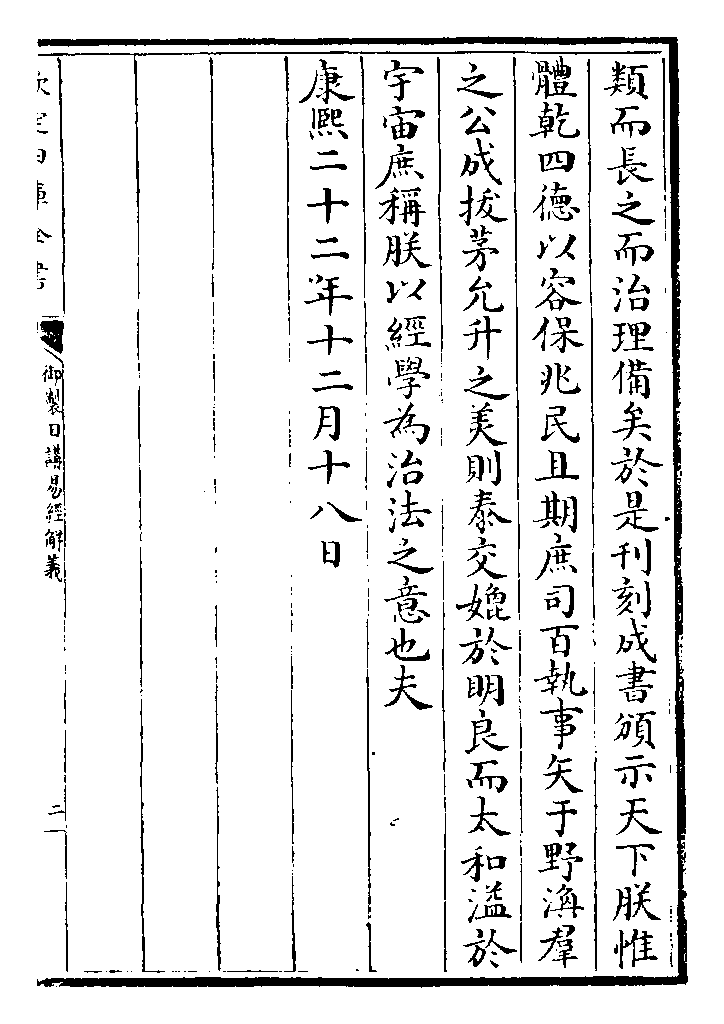 類而長之而治理備矣於是刊刻成書頒示天下朕惟
體乾四德以容保兆民且期庶司百執事矢于野渙羣
之公成拔茅允升之美則泰交媲於明良而太和溢於
宇宙庶稱朕以經學為治法之意也夫
康熙二十二年十二月十八日
欽定四庫全書
御製日講易經解義
二